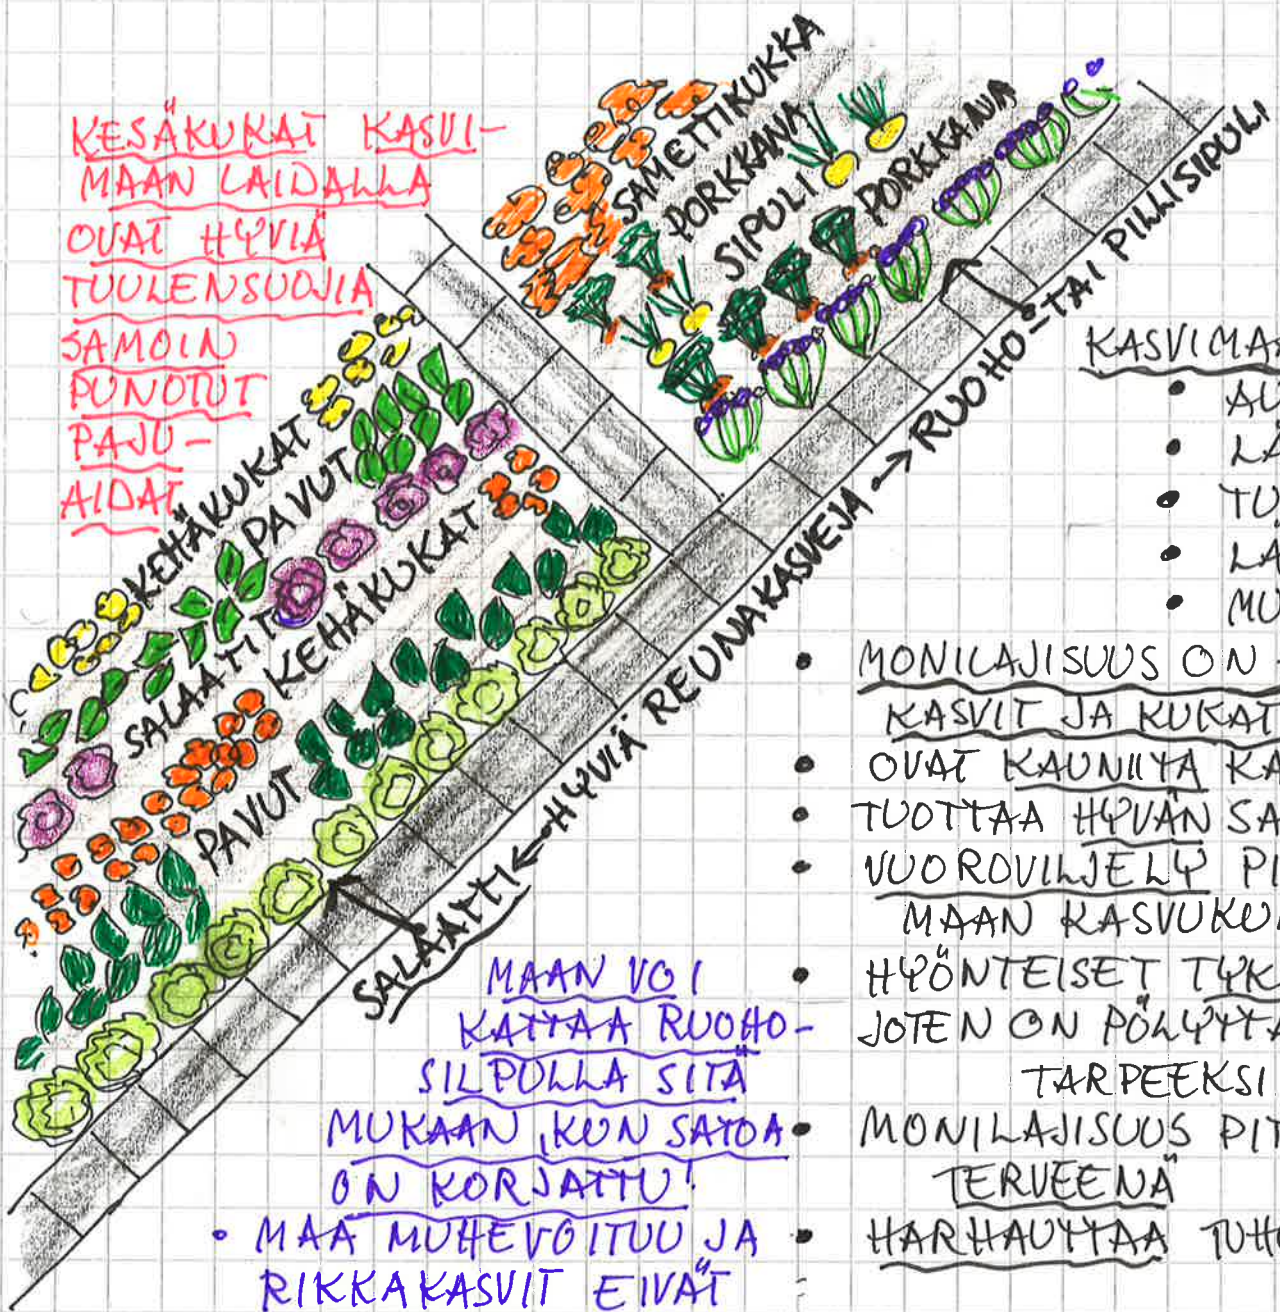 KESÄKUKAT KASVI-
MAAN LAIDALLA
OVAT HYVIÄ
TUULENSUOJIA
SAMOIN
PUNOTUT
PAJU-
AIDAT
SAMETTIKUKKA
PORKKANA
SIPULI
PORKKANA
KEHÄKUKAT
PAVUT
SALAATIT
KEHÄKUKAT
PAVUT
SALAATTI ← HYVIÄ REUNAKASVEJA → RUOHO- TAI PILLISIPULI
KASVIMAS
• AU
• LÄ
• TU
• LA
• MU
• MONILAJISUUS ON
KASVIT JA KUKAT
• OVAT KAUNIITA KA
• TUOTTAA HYVÄN SA
• VUOROVILJELY PI
MAAN KASVUKU
• HYÖNTEISET TYK
JOTEN ON PÖLYTTÄ
TARPEEKSI
• MONILAJISUUS PIT
TERVEENÄ
• HARHAUTTAA TUHO
MAAN VOI
KATTAA RUOHO-
SILPULLA SITÄ
MUKAAN, KUN SATOA
ON KORJATTU!
• MAA MUHEVOITUU JA
RIKKAKASVIT EIVÄT